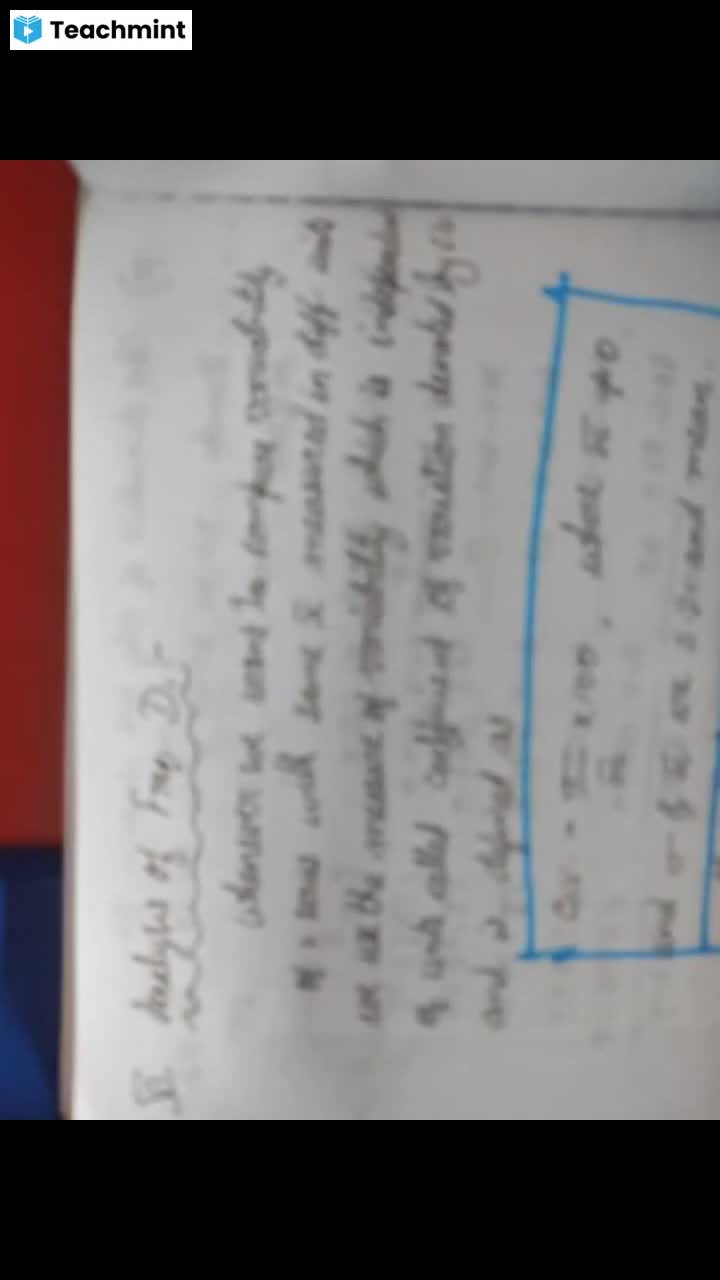 Teachmint
VI Analysis of Freq Dis-
whenever we want to compare variability
of 2 series with same x̄ measured in diff units
we use the measure of variability which is independent
of units called coefficient of variation denoted by CV
and is defined as
C.V. = σ/x̄ × 100, where x̄ ≠ 0
and σ & x̄ are S.D. and mean.